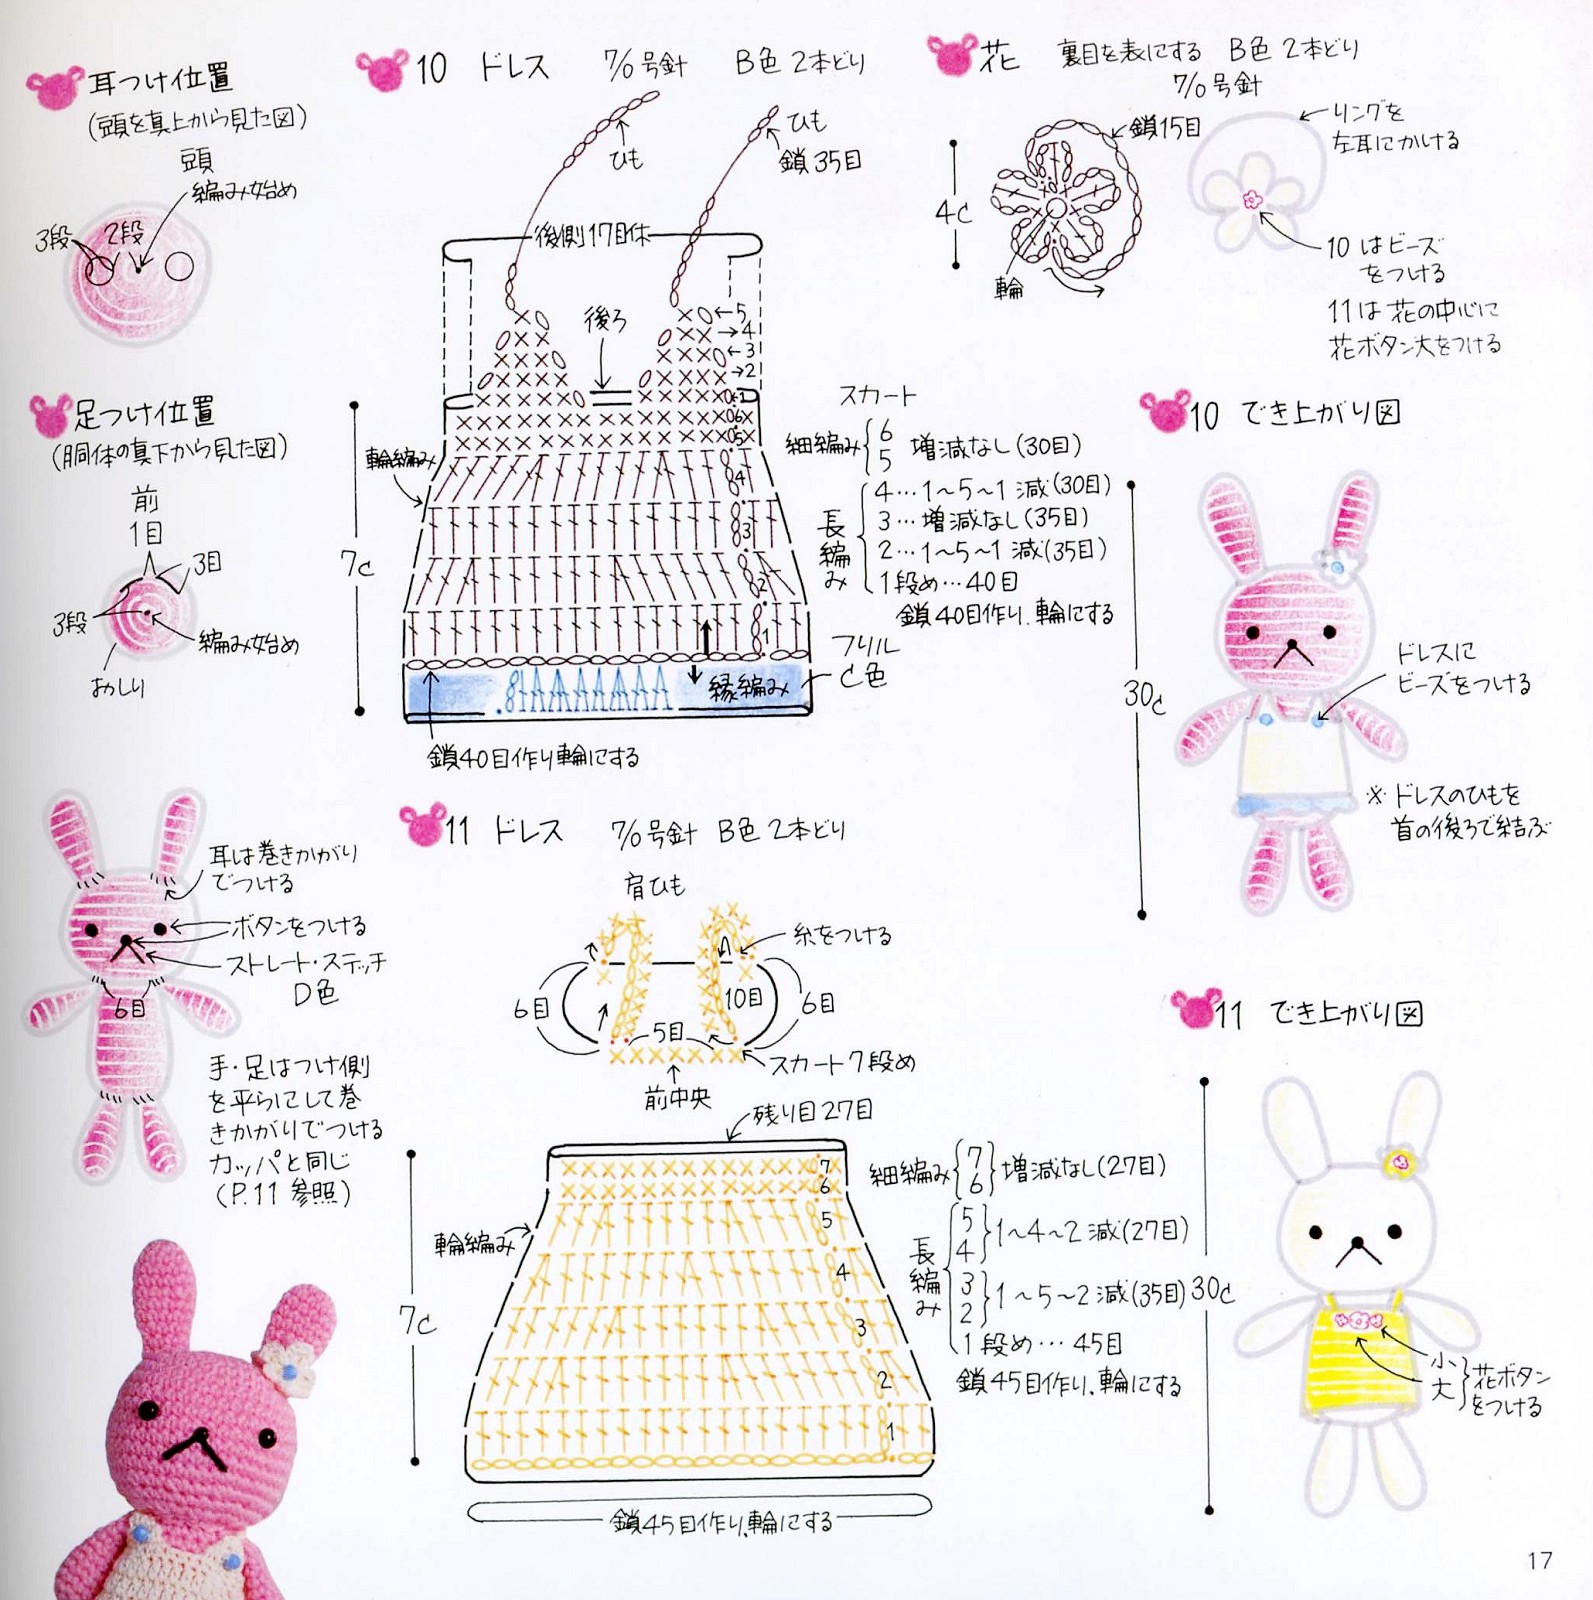 耳つけ位置
(頭を真上から見た図)
頭
編み始め
3段
2段
足つけ位置
(胴体の真下から見た図)
前
1目
3目
3段
編み始め
おしり
10 ドレス 7/0号針 B色 2本どり
ひも
ひも
鎖35目
後側17目休
後ろ
5
4
3
2
1
6
5
4
3
2
1
輪編み
7c
縁編み
フリル
C色
鎖40目作り輪にする
スカート
細編み
6
5 増減なし(30目)
長編み
4…1〜5〜1 減(30目)
3…増減なし(35目)
2…1〜5〜1 減(35目)
1段め…40目
鎖40目作り、輪にする
花 裏目を表にする B色 2本どり
7/0号針
鎖15目
4c
輪
リングを
左耳にかける
10 はビーズ
をつける
11は 花の中心に
花ボタン大をつける
10 でき上がり図
30c
ドレスに
ビーズをつける
※ ドレスのひもを
首の後ろで結ぶ
耳は巻きかがり
でつける
ボタンをつける
ストレート・ステッチ
D色
6目
手・足はつけ側
を平らにして巻
きかがりでつける
カッパと同じ
(P.11 参照)
11 ドレス 7/0号針 B色 2本どり
肩ひも
糸をつける
6目
10目
6目
5目
スカート7段め
前中央
残り目27目
7
6
5
4
3
2
1
輪編み
7c
鎖45目作り、輪にする
細編み
7
6
増減なし(27目)
長編み
5
4
1〜4〜2 減(27目)
3
2
1〜5〜2 減(35目)
1段め…45目
鎖45目作り、輪にする
11 でき上がり図
30c
小
大
花ボタン
をつける
17